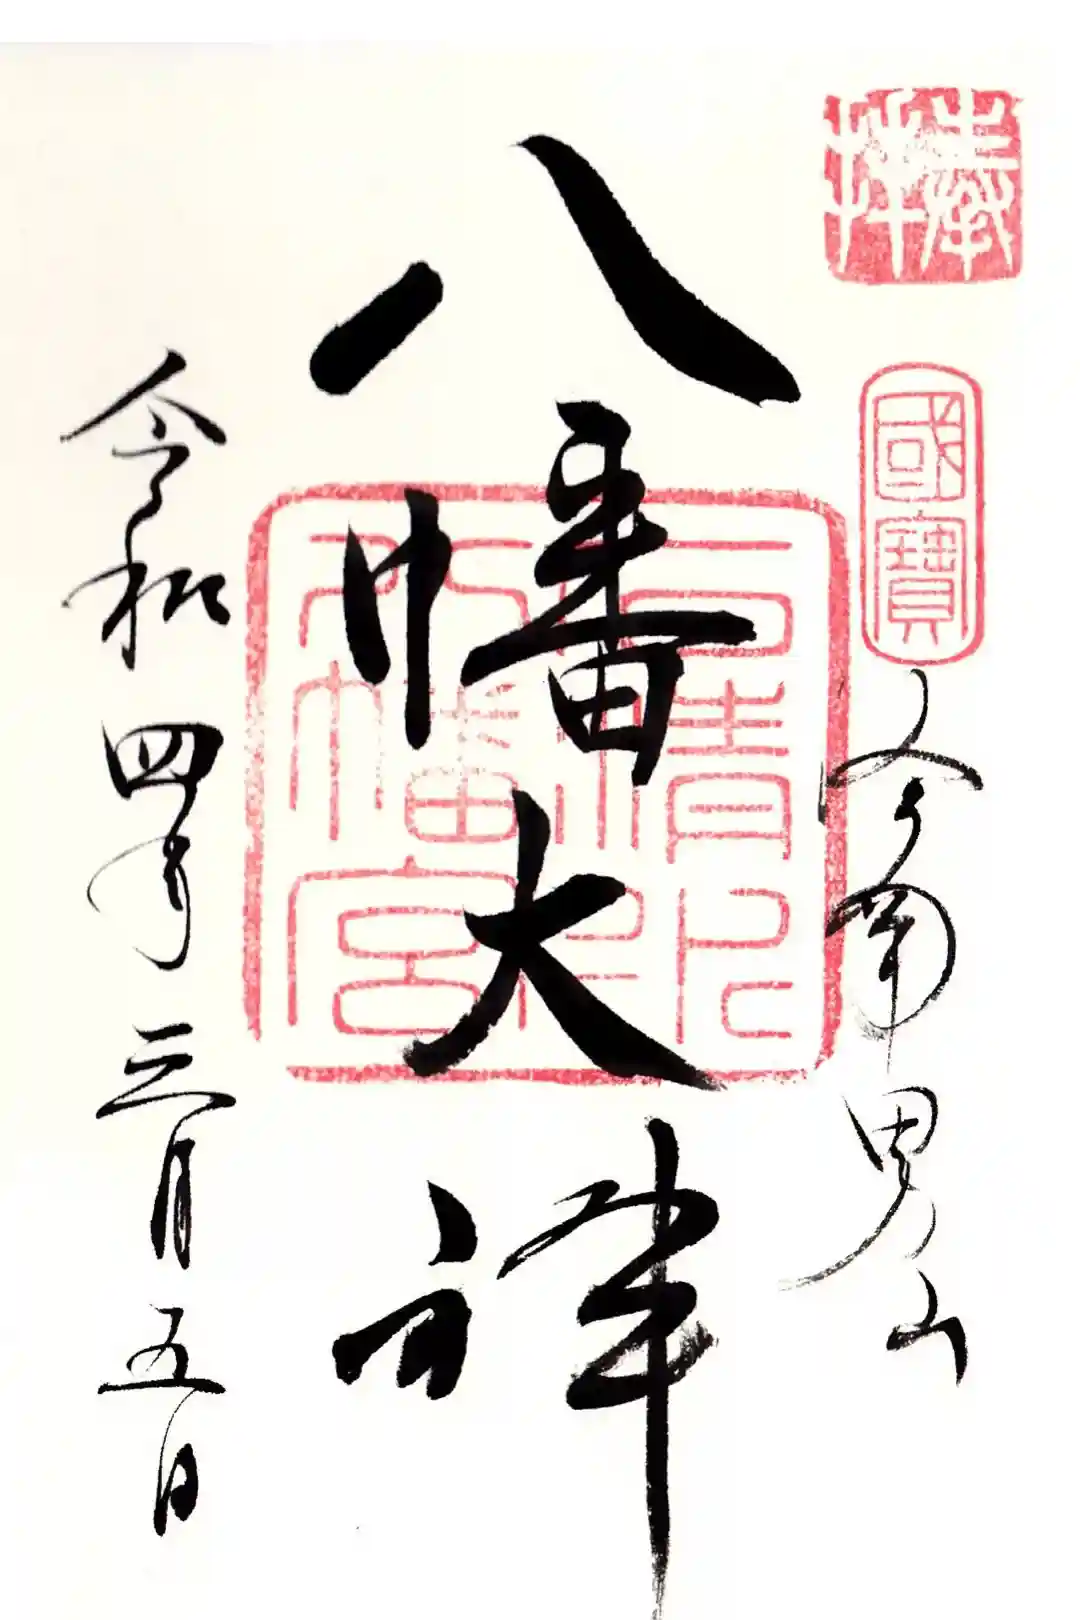 奉拝
國寶
京南男山
石清水八幡宮
八幡大神
令和四年三月五日